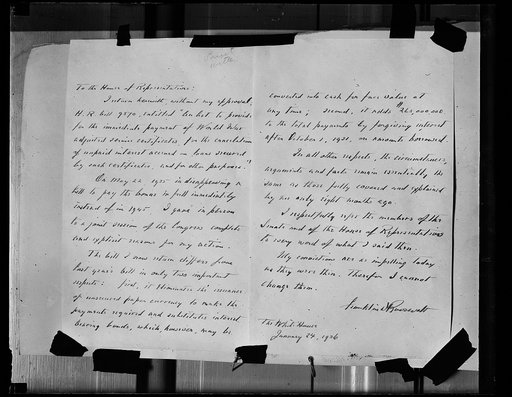 To the House of Representatives:
I return herewith without my approval,
H.R. bill 9870, entitled "An Act to provide
for the immediate payment of World War
adjusted service certificates, for the cancelation
of unpaid interest accrued on loans secured
by such certificates, and for other purposes."
On May 22 1935 in disapproving a
bill to pay the bonus in full immediately
instead of in 1945 I gave in person
to a joint session of the Congress complete
and explicit reasons for my action.
The bill I now return differs from
last year's bill in only two important
respects: first, it eliminates the issuance
of unsecured paper currency to make the
payments required and substitutes interest
bearing bonds, which, however, may be
converted into cash for face value at
any time; second, it adds $263,000,000
to the total payments by forgiving interest
after October 1, 1931, on amounts borrowed.
In all other respects, the circumstances,
arguments and facts remain essentially the
same as those fully covered and explained
by me only eight months ago.
I respectfully refer the members of the
Senate and of the House of Representatives
to every word of what I said then.
My convictions are as impelling today
as they were then. Therefore I cannot
change them.
Franklin D Roosevelt
The White House
January 24, 1936